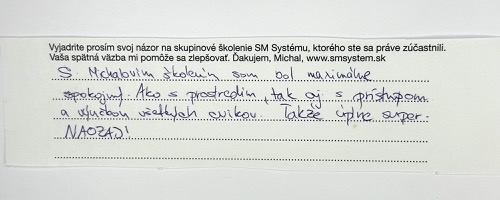 Vyjadrite prosím svoj názor na skupinové školenie SM Systému, ktorého ste sa práve zúčastnili.
Vaša spätná väzba mi pomôže sa zlepšovať. Ďakujem, Michal, www.smsystem.sk
S Michalovím školením som bol maximálne
spokojný. Ako s prostredím, tak aj s prístupom
a výučbou všetkých cvikov. Takže úplne super.
NAOZAJ!